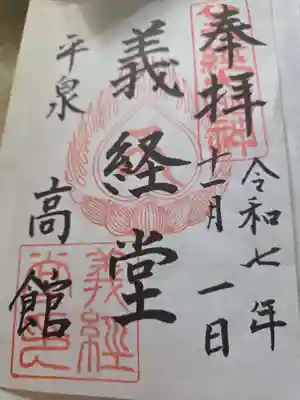 奉拝
令和七年
十一月一日
義経堂
平泉
高館
義経
堂印